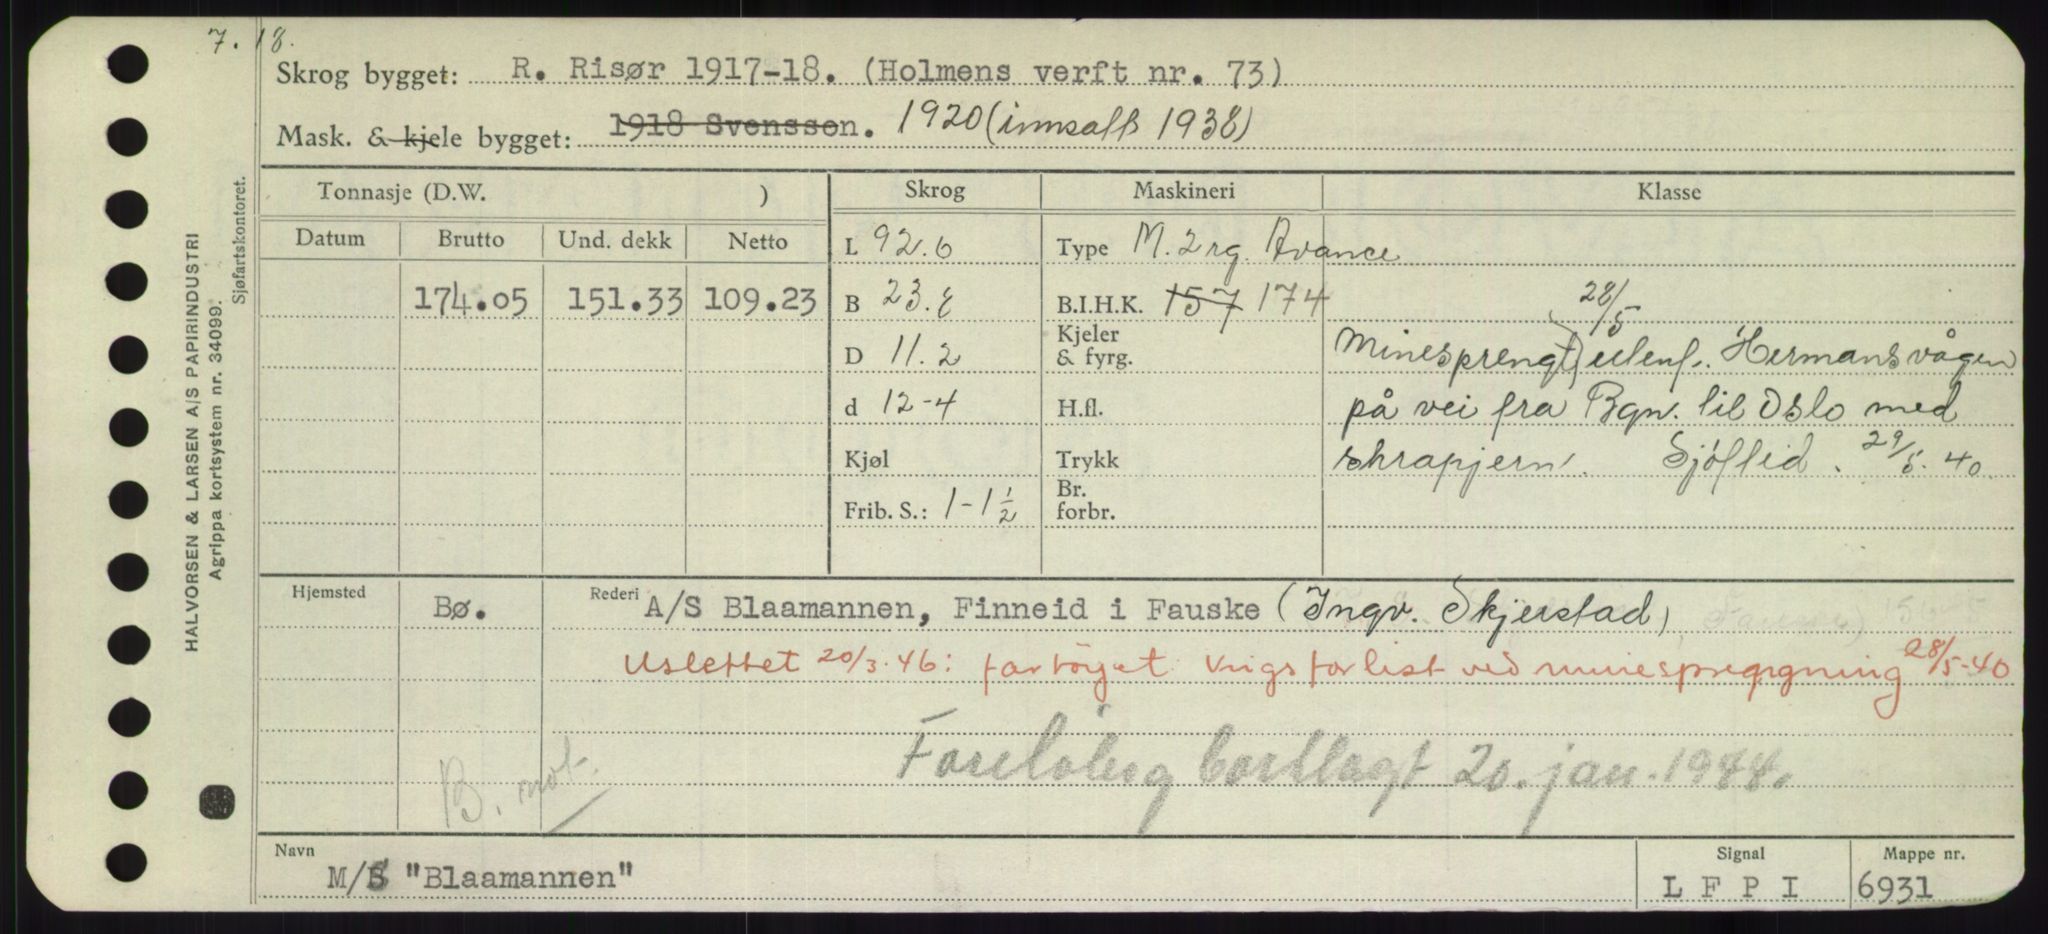 7. 18.
Skrog bygget: R. Risør 1917-18. (Holmens verft nr. 73)
Mask. & kjele bygget: 1918 Svenssen. 1920 (innsatt 1938)
Tonnasje (D.W. ) Skrog Maskineri Klasse
Datum Brutto Und. dekk Netto L 92.0 Type M. 2 rg. Avance
174.05 151.33 109.23 B 23.8 B.I.H.K. 157 174 28/5
D 11.2 Kjeler & fyrg. Minesprengt utenf. Hermansvågen
d 12-4 H.fl. på vei fra Bgn. til Oslo med
Kjøl Trykk skrapjern. Sjöftid. 29/5. 40.
Frib. S.: 1-1 1/2 Br. forbr.
Hjemsted Bø. Rederi A/S Blaamannen, Finneid i Fauske (Ingv. Skjerstad)
Uslettet 20/3.46: fartöyet krigsforlist ved minesprengning 28/5-40
Foreløbig bortlagt 20. jan. 1944.
B. mot.
Navn Signal Mappe nr.
M/S "Blaamannen" L F P I 6931
HALVORSEN & LARSEN A/S PAPIRINDUSTRI
Agrippa kortsystem nr. 34099.
Sjøfartskontoret.